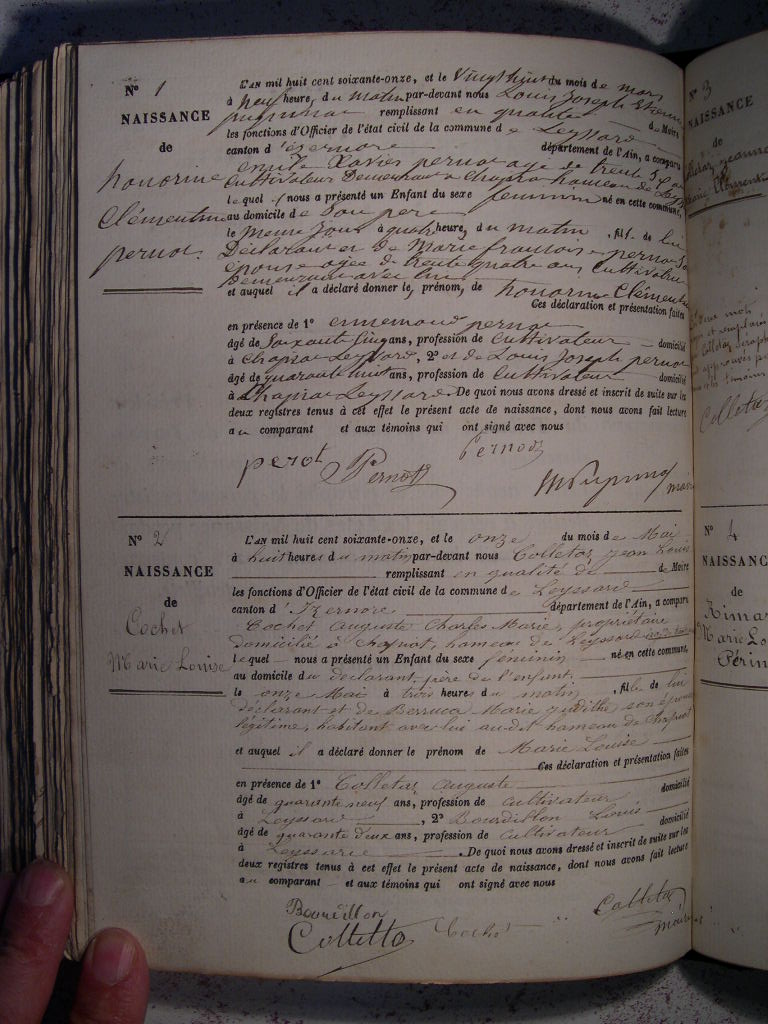 N° 1
NAISSANCE
de
honorine
Clémentine
pernot
L'AN mil huit cent soixante-onze, et le Vingt huit du mois de mars
à neuf heure, du matin par-devant nous Louis Joseph Etienne
remplissant en qualité de Maire
les fonctions d'Officier de l'état civil de la commune de Leyssard
canton d'izernore département de l'Ain, a comparu
emile Xavier pernot age de trente
Cultivateur Demeurant a Chapiat hameau de Leyssard
lequel nous a présenté un Enfant du sexe feminin né en cette commune,
au domicile de Son pere
le meme Jour à quatre heure, du matin, fille de lui
Déclarant et de Marie francoise pernot
epouse agee de trente quatre ans Cultivatrice
Demeurant avec lui
et auquel il a déclaré donner le, prénom, de honorine Clémentine
Ces déclaration et présentation faites
en présence de 1° ennemond pernot
âgé de Soixante Cinq ans, profession de Cultivateur domicilié
à Chapiat Leyssard, 2° et de Louis Joseph pernot
âgé de quarante huit ans, profession de Cultivateur domicilié
à Chapiat Leyssard. De quoi nous avons dressé et inscrit de suite sur les
deux registres tenus à cet effet le présent acte de naissance, dont nous avons fait lecture
au comparant et aux témoins qui ont signé avec nous
pernot
perot Pernot
maire
N° 2
NAISSANCE
de
Cochet
Marie Louise
L'AN mil huit cent soixante-onze, et le onze du mois de Mai
à huit heures du matin par-devant nous Colletaz Jean Louis
remplissant en qualité de Maire
les fonctions d'Officier de l'état civil de la commune de Leyssard
canton d'Izernore département de l'Ain, a comparu
Cochet Auguste Charles Marie, propriétaire
domicilié à Chapiat, hameau de Leyssard
lequel nous a présenté un Enfant du sexe féminin né en cette commune,
au domicile du déclarant, père de l'enfant
le onze Mai à trois heures du matin, fille de lui
déclarant et de Berruca Marie Judithe son épouse
légitime, habitant avec lui audit hameau de Chapiat
et auquel il a déclaré donner le prénom de Marie Louise
Ces déclaration et présentation faites
en présence de 1° Colletaz Auguste domicilié
âgé de quarante neuf ans, profession de cultivateur
à Leyssard, 2° Bourdillon Louis domicilié
âgé de quarante deux ans, profession de cultivateur
à Leyssard. De quoi nous avons dressé et inscrit de suite sur les
deux registres tenus à cet effet le présent acte de naissance, dont nous avons fait lecture
au comparant et aux témoins qui ont signé avec nous
Bourdillon
Colletta Cochet Colletaz
maire
N° 3
NAISSANCE
de
Jeanne
Marie Clementine
Colletaz
N° 4
NAISSANC
de
Marie Lo
Périn